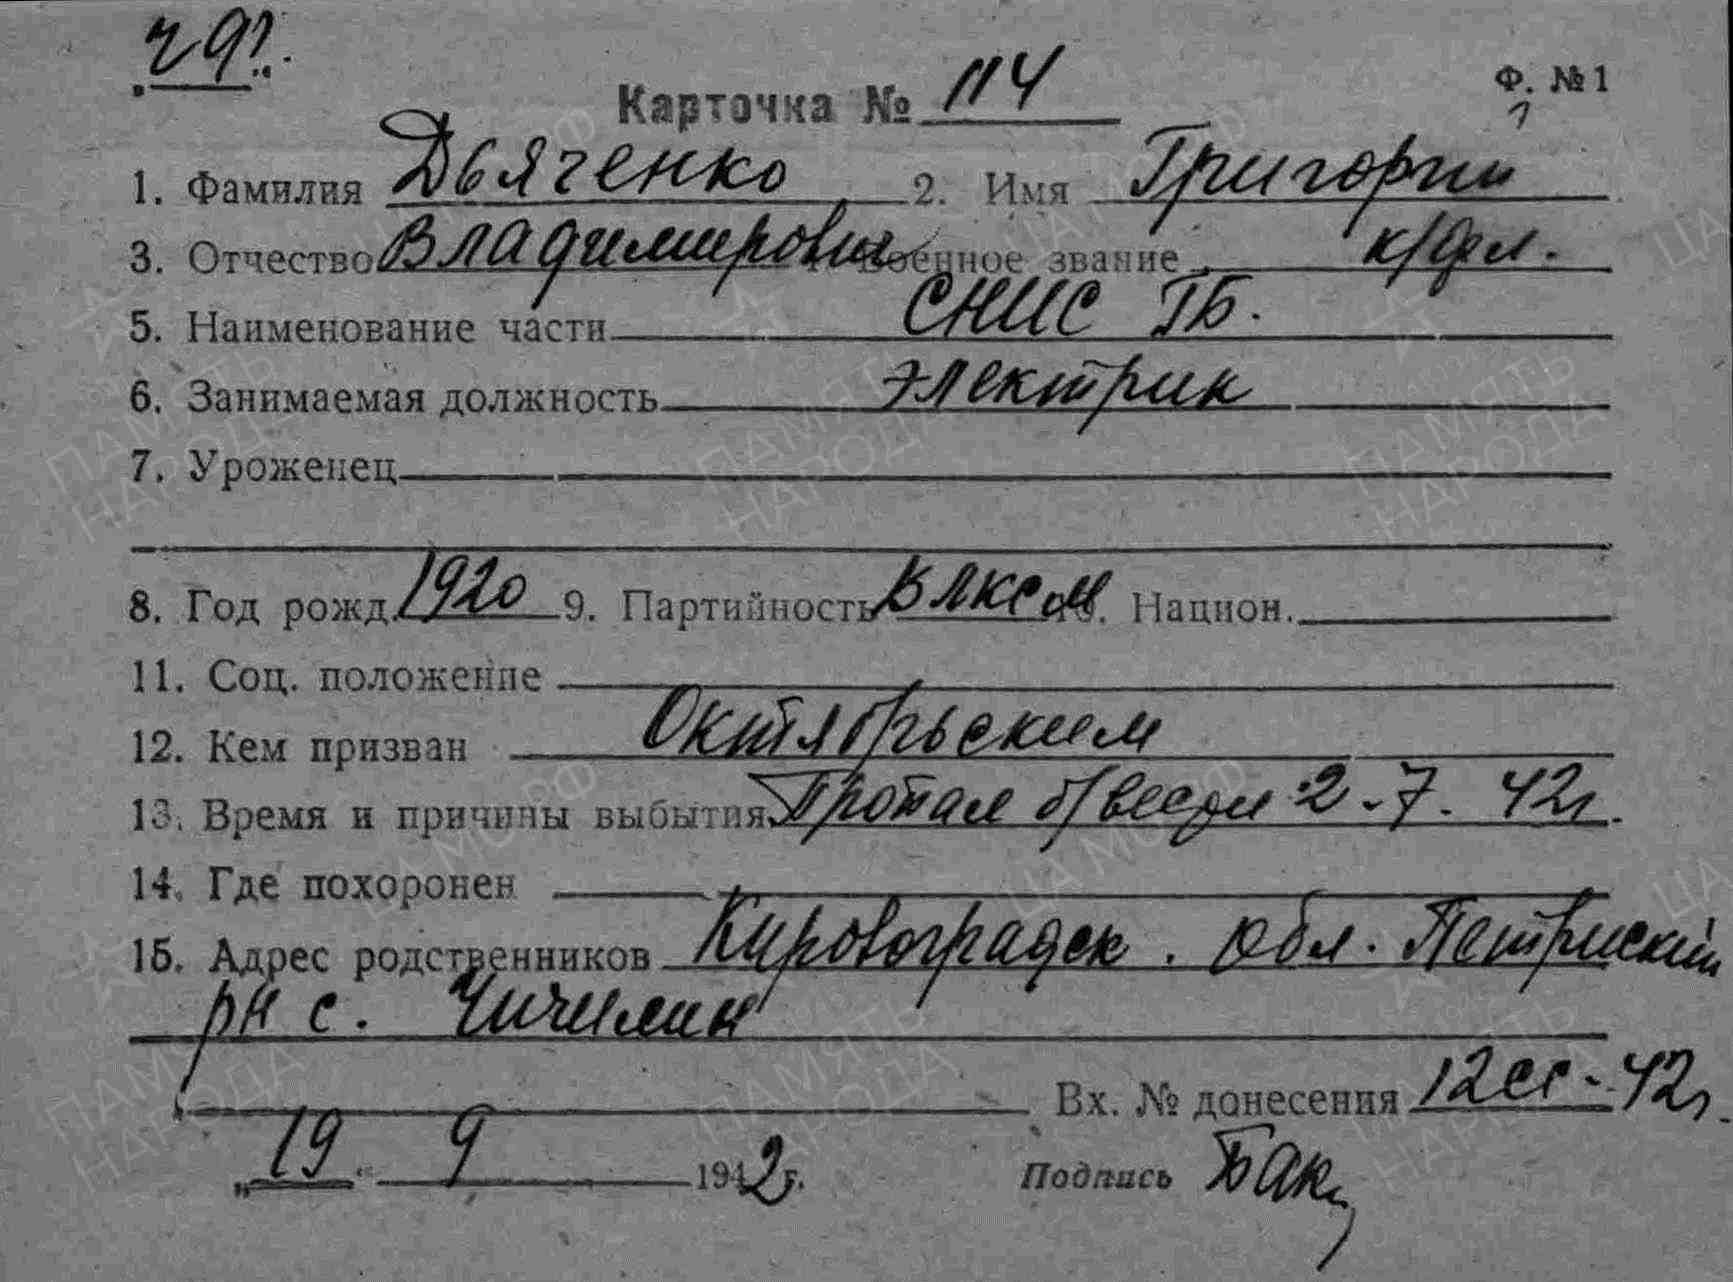 Карточка № 114 Ф. № 1
1. Фамилия Дьяченко 2. Имя Григорий
3. Отчество Владимирович Военное звание к/фл.
5. Наименование части СНИС ГБ.
6. Занимаемая должность электрик
7. Уроженец
8. Год рожд. 1920 9. Партийность ВЛКСМ 10. Национ.
11. Соц. положение
12. Кем призван Октябрьским
13. Время и причины выбытия Пропал б/вести 2-7. 42г.
14. Где похоронен
15. Адрес родственников Кировоградск. обл. Петриский
рн с. Чичилин
Вх. № донесения 12сс-42г
„19“ 9 1942г. Подпись Бак